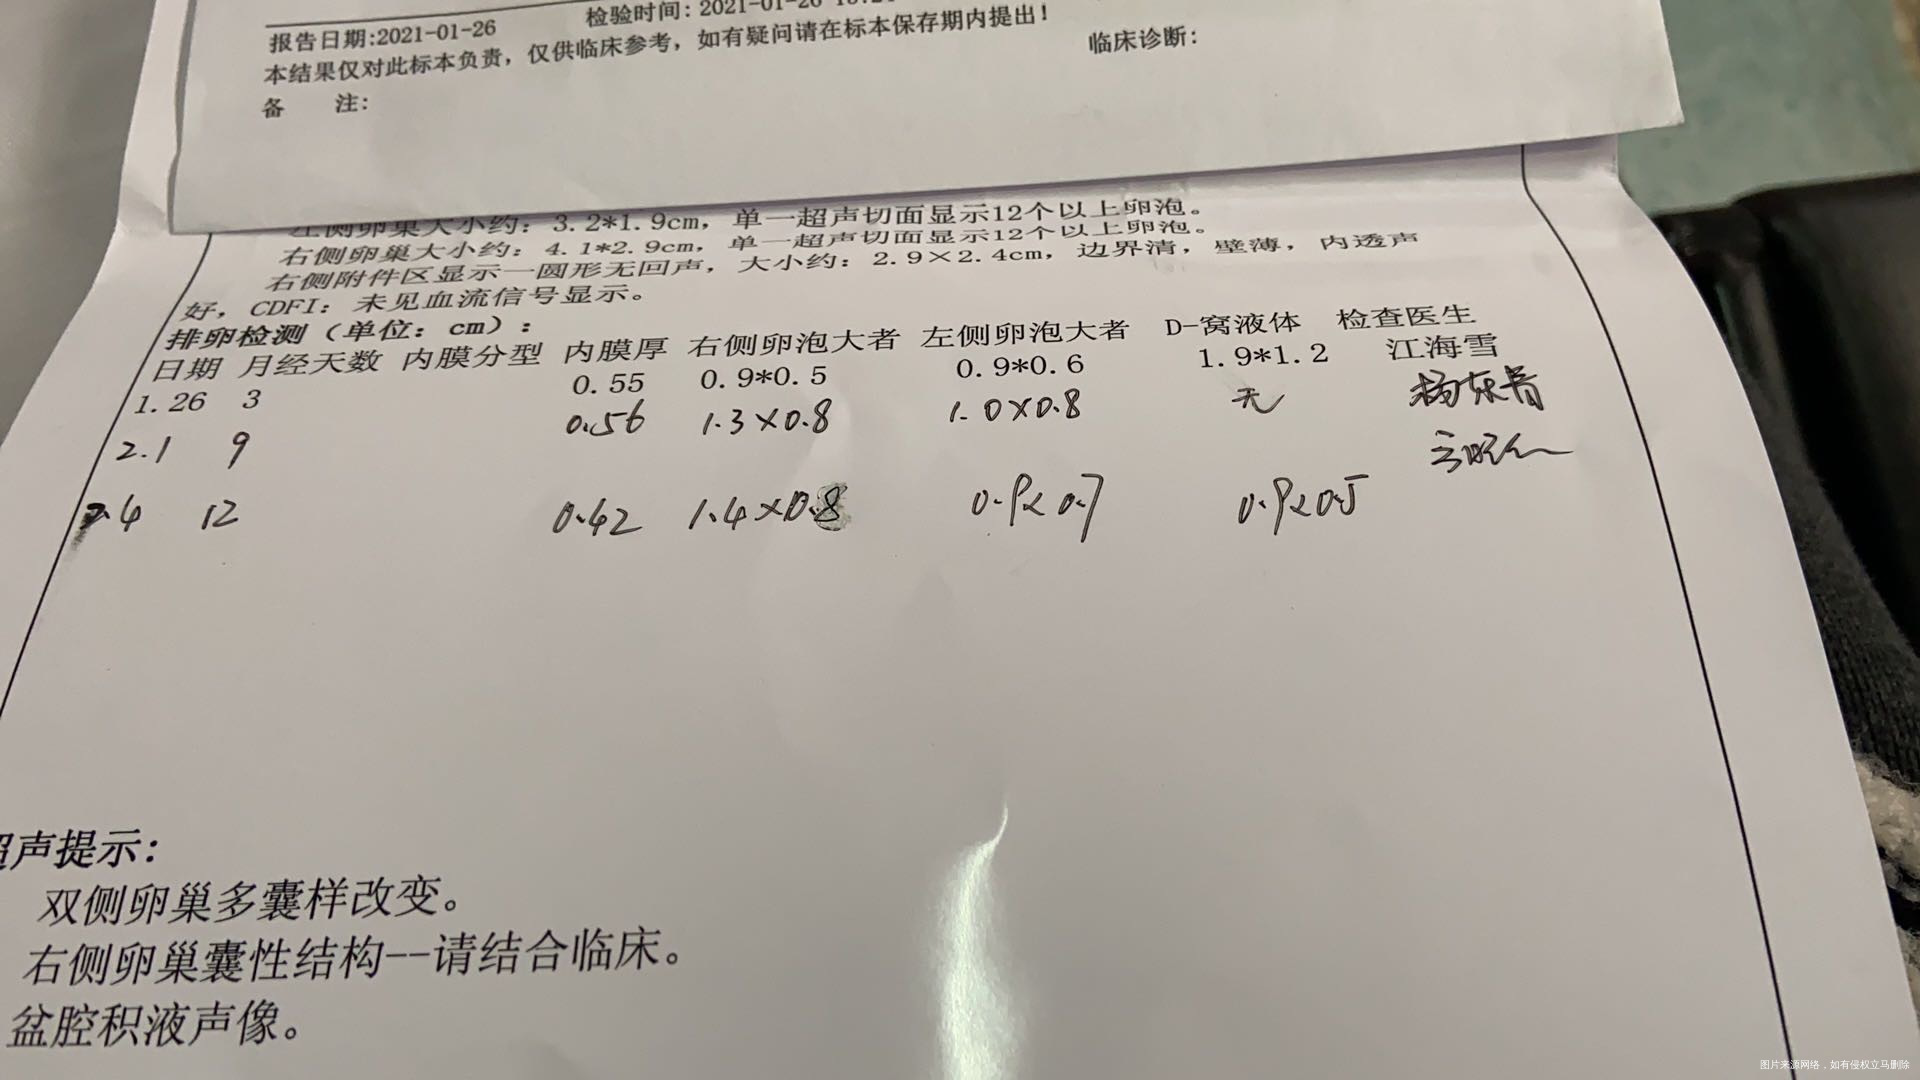 检验时间: 2021-01-26
报告日期:2021-01-26
本结果仅对此标本负责，仅供临床参考，如有疑问请在标本保存期内提出！
临床诊断:
备 注:
左侧卵巢大小约: 3.2*1.9cm, 单一超声切面显示12个以上卵泡。
右侧卵巢大小约: 4.1*2.9cm, 单一超声切面显示12个以上卵泡。
右侧附件区显示一圆形无回声, 大小约: 2.9×2.4cm, 边界清, 壁薄, 内透声
好, CDFI: 未见血流信号显示。
排卵检测 (单位: cm) :
日期 月经天数 内膜分型 内膜厚 右侧卵泡大者 左侧卵泡大者 D-窝液体 检查医生
1.26 3 0.55 0.9*0.5 0.9*0.6 1.9*1.2 江海雪
2.1 9 0.56 1.3×0.8 1.0×0.8 无
2.4 12 0.42 1.4×0.8 0.9×0.7 0.9×0.5
超声提示:
双侧卵巢多囊样改变。
右侧卵巢囊性结构--请结合临床。
盆腔积液声像。
图片来源网络，如有侵权立马删除